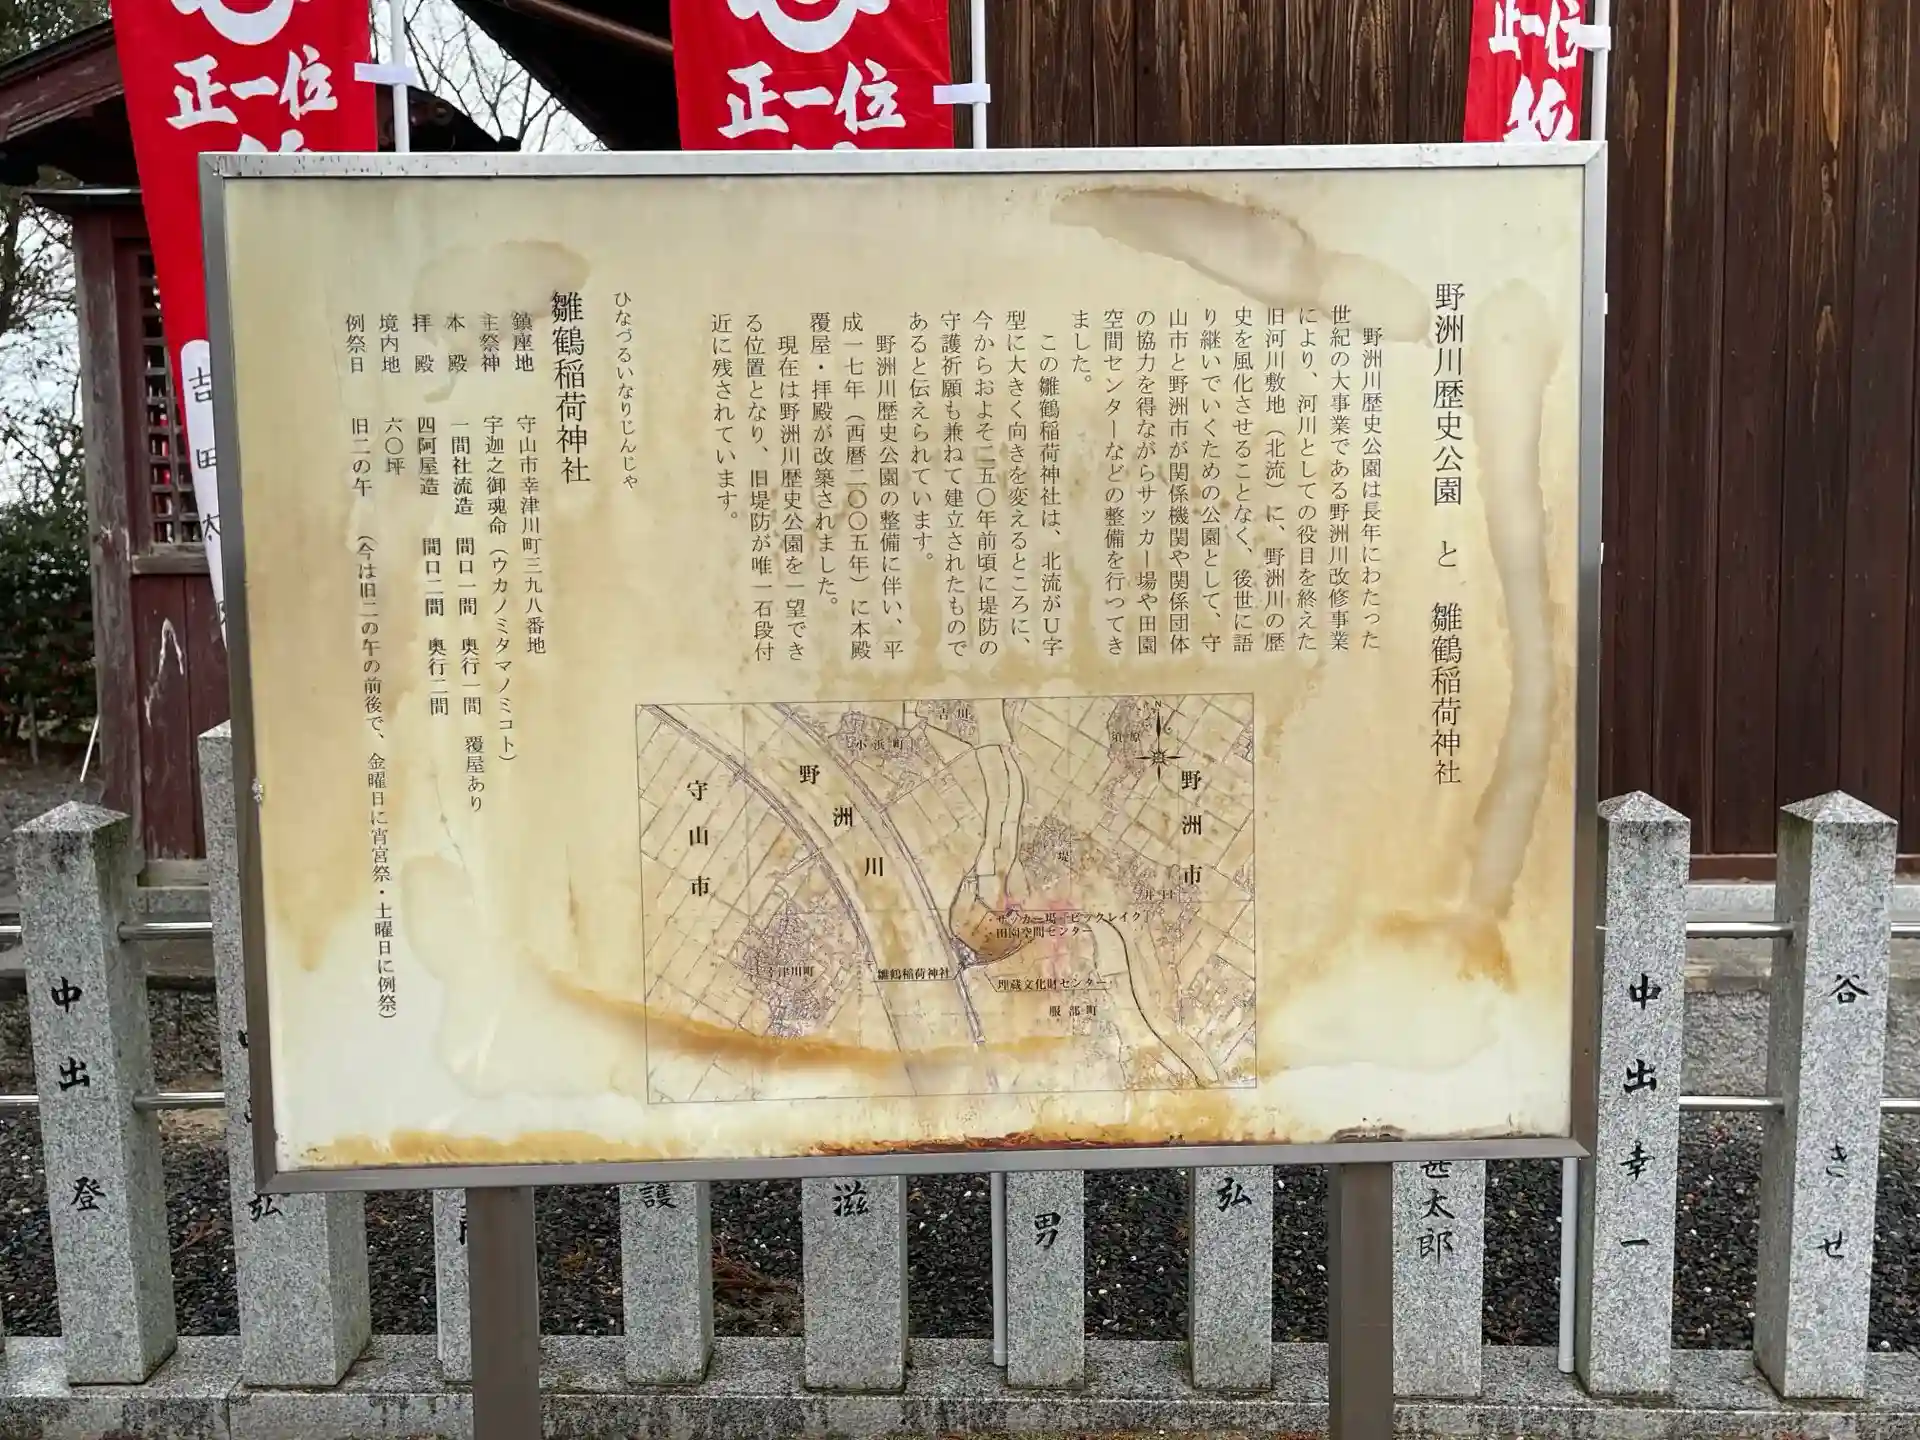 正一位
正一位
正一位
野洲川歴史公園 と 雛鶴稲荷神社
野洲川歴史公園は長年にわたった
世紀の大事業である野洲川改修事業
により、河川としての役目を終えた
旧河川敷地（北流）に、野洲川の歴
史を風化させることなく、後世に語
り継いでいくための公園として、守
山市と野洲市が関係機関や関係団体
の協力を得ながらサッカー場や田園
空間センターなどの整備を行ってき
ました。
この雛鶴稲荷神社は、北流がＵ字
型に大きく向きを変えるところに、
今からおよそ二五〇年前頃に堤防の
守護祈願も兼ねて建立されたもので
あると伝えられています。
野洲川歴史公園の整備に伴い、平
成一七年（西暦二〇〇五年）に本殿
覆屋・拝殿が改築されました。
現在は野洲川歴史公園を一望でき
る位置となり、旧堤防が唯一石段付
近に残されています。
ひなづるいなりじんじゃ
雛鶴稲荷神社
鎮座地 守山市幸津川町三九八番地
主祭神 宇迦之御魂命（ウカノミタマノミコト）
本殿 一間社流造 間口一間 奥行一間 覆屋あり
拝殿 四阿屋造 間口二間 奥行二間
境内地 六〇坪
例祭日 旧二の午 （今は旧二の午の前後で、金曜日に宵宮祭・土曜日に例祭）
野洲市
野洲川
守山市
吉川
小浜町
須原
堤
井口
N
・サッカー場「ビックレイク」
・田園空間センター
雛鶴稲荷神社
・埋蔵文化財センター
幸津川町
服部町
吉田
中出登
弘
護
滋
男
弘
甚太郎
中出幸一
谷きせ